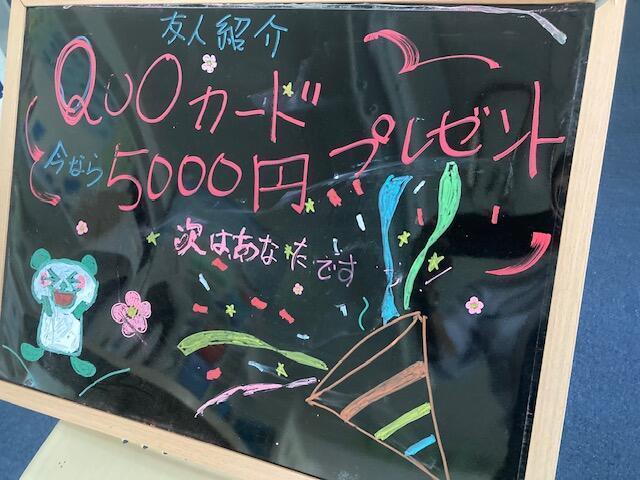 友人紹介
QUOカード
今なら5000円プレゼント
次はあなたです